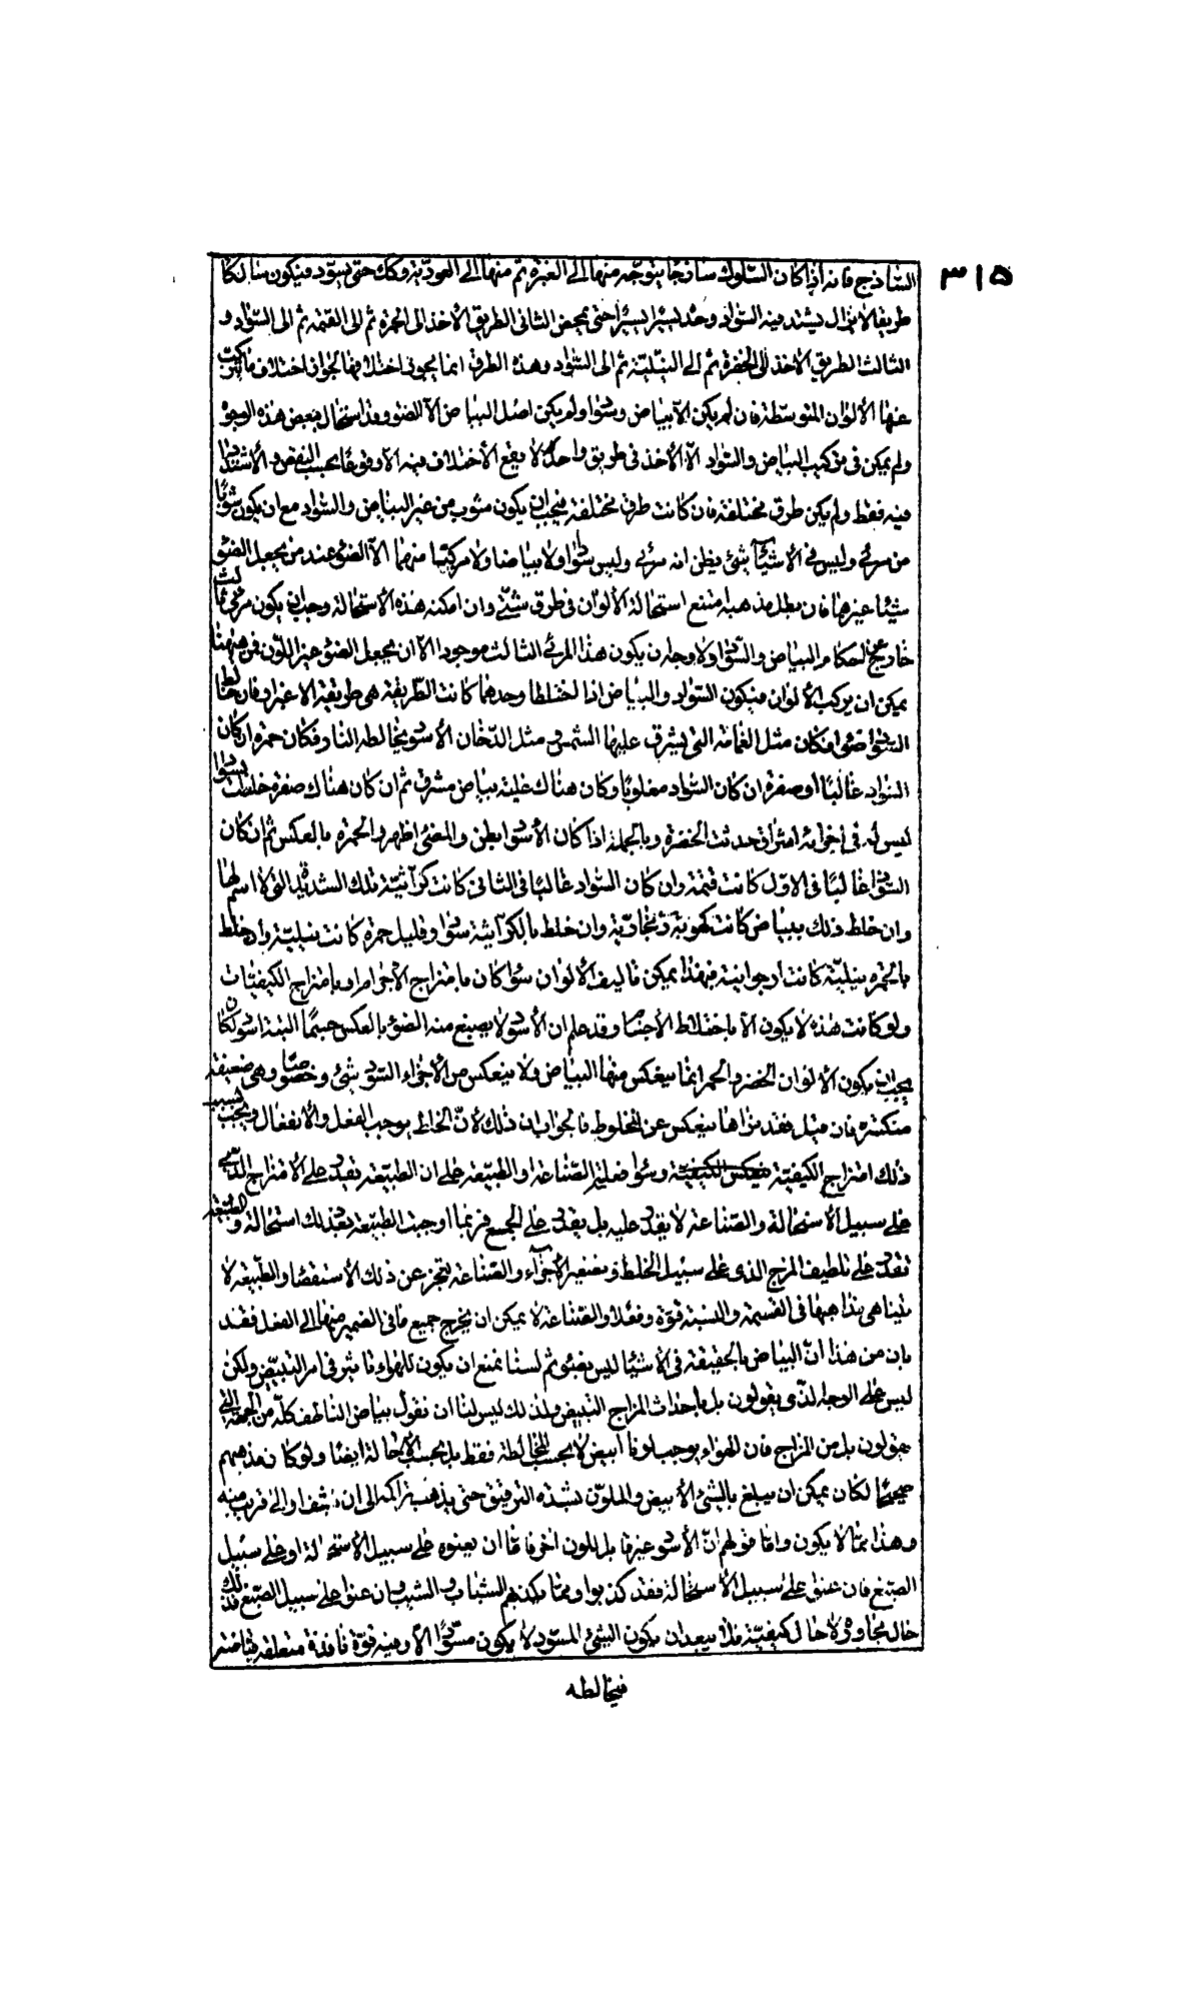 ٣١٥
الساذج فانه اذا كان السلوك ساذجا يتوجه منها الى الغبرة ثم منها الى العودية وكك حتى يسود فيكون سالكا
طريقا لا يزال يشتد فيه السواد وحده يسيرا يسيرا حتى يمحض الثانى الطريق الأخذ الى الحمرة ثم الى القتمة ثم الى السواد و
الثالث الطريق الأخذ الى الخضرة ثم الى النيلية ثم الى السواد وهذه الطرق انما يجوز اختلافها لجواز اختلاف ما يتركب
عنها الألوان المتوسطة فان لم يكن الا بياض وسواد ولم يكن اصل البياض الا الضوء وقد استحال ببعض هذه الوجوه
ولم يمكن فى تركيب البياض والسواد الا الأخذ فى طريق واحد لا يقع الأختلاف فيه الا وقوعا بحسب النقص والأشتداد
فيه فقط ولم يكن طرق مختلفة فان كانت طرق مختلفة فيجب ان يكون شوب من غير البياض والسواد مع ان يكون شوبا
من مرئى وليس فى الأشياء شئ يظن انه مرئى وليس سوادا ولا بياضا ولا مركبا منهما الا الضوء عند من يجعل الضوء
شيئا غيرهما فان بطل مذهبه امتنع استحالة الألوان فى طرق شتى وان امكنه هذه الأستحالة وجب ان يكون مرئى ثالث
خارج عن احكام البياض والسواد ولا وجه ان يكون هذا المرئى الثالث موجودا الا ان يجعل الضوء غير اللون فمن ههنا
يمكن ان يركب الألوان فيكون السواد والبياض اذا اختلطا وحدهما كانت الطريقة هى طريقة الاغبرار فان خالط
السواد ضوء فكان مثل الغمامة التى يشرق عليها الشمس ومثل الدخان الأسود يخالطه النار فكان حمرة ان كان
السواد غالبا او صفرة ان كان السواد مغلوبا وكان هناك غلبة بياض مشرق ثم ان كان هناك صفرة خلطت بسواد
ليس له فى اجزائه اشراق حدثت الخضرة وبالجملة اذا كان الأسود ابطن والمضئ اظهر والحمرة بالعكس ثم ان كان
السواد غالبا فى الاول كانت قتمة وان كان السواد غالبا فى الثانى كانت كراثية تلك الشديدة التى لا اسم لها
وان خلط ذلك ببياض كانت كهوبة زنجارية وان خلط بالكراثية سواد وقليل حمرة كانت نيلية وان خلط
بالحمرة نيلية كانت ارجوانية فبهذا يمكن تاليف الألوان سواء كان بامتزاج الأجرام او بامتزاج الكيفيات
ولو كانت هذه لا يكون الا باختلاط الأجسام وقد علم ان الأسود لا يصبغ منه الضوء بالعكس جسما البتة اسود لكان
يجب ان يكون الألوان الخضر والحمر انما ينعكس منها البياض ولا ينعكس من الأجزاء السود شئ وخصوصا وهى ضعيفة
منكسرة فان قيل فقد نراها ينعكس عن المخلوط فالجواب ان ذلك لأن الخلط يوجب الفعل والأنفعال ويجب بسبب
ذلك امتزاج الكيفية وسواء فعلته الصناعة او الطبيعة على ان الطبيعة تقدر على الامتزاج الذى
على سبيل الأستحالة والصناعة لا تقدر عليه بل يقدر على الجمع فربما اوجبت الطبيعة بعد ذلك استحالة والطبيعة
تقدر على تلطيف المزج الذى على سبيل الخلط وتصغير الأجزاء والصناعة تعجز عن ذلك الأستقصاء والطبيعة لا
يتناهى مذاهبها فى القسمة والنسبة قوة وفعلا والصناعة لا يمكن ان يخرج جميع ما فى الضمير منها الى الفعل فقد
بان من هذا ان البياض بالحقيقة فى الأشياء ليس بضوء ثم لسنا نمنع ان يكون للهواء تاثير فى امر التبييض ولكن
ليس على الوجه الذى يقولون بل باحداث المزاج التبييض ولذلك ليس لنا ان نقول بياض الناطف كله من الجهة التى
يقولون بل من المزاج فان الهواء يوجب لونا ابيض لا بحسب المخالطة فقط بل بحسب الأحالة ايضا ولو كان مذهبهم
صحيحا لكان يمكن ان يبلغ بالشئ الأبيض والملون بشدة الترقيق حتى يذهب تراكمه الى ان يشف او الى قريب منه
وهذا مما لا يكون واما قولهم ان الأسود غير قابل للون اخر فاما ان يعنوه على سبيل الأستحالة او على سبيل
الصبغ فان عنوا على سبيل الأستحالة فقد كذبوا ومما يكذبهم الشباب والشيب وان عنوا على سبيل الصبغ فذلك
حال مجاورة لا حال كيفية فلا يبعد ان يكون الشئ المسود لا يكون مسودا الا وفيه قوة نافذة متعلقة قباضة
فيخالطه